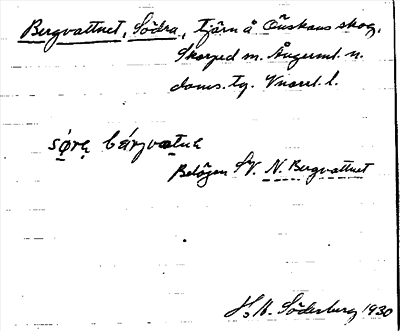 Bergvattnet, Södra, tjärn å Önskans skog,
Skorped sn. Ångerml. n.
doms. tg. Vnorrl. l.
sø̨rę bárjvatnɛ
Belägen SV. N. Bergvattnet
H. Söderberg 1930